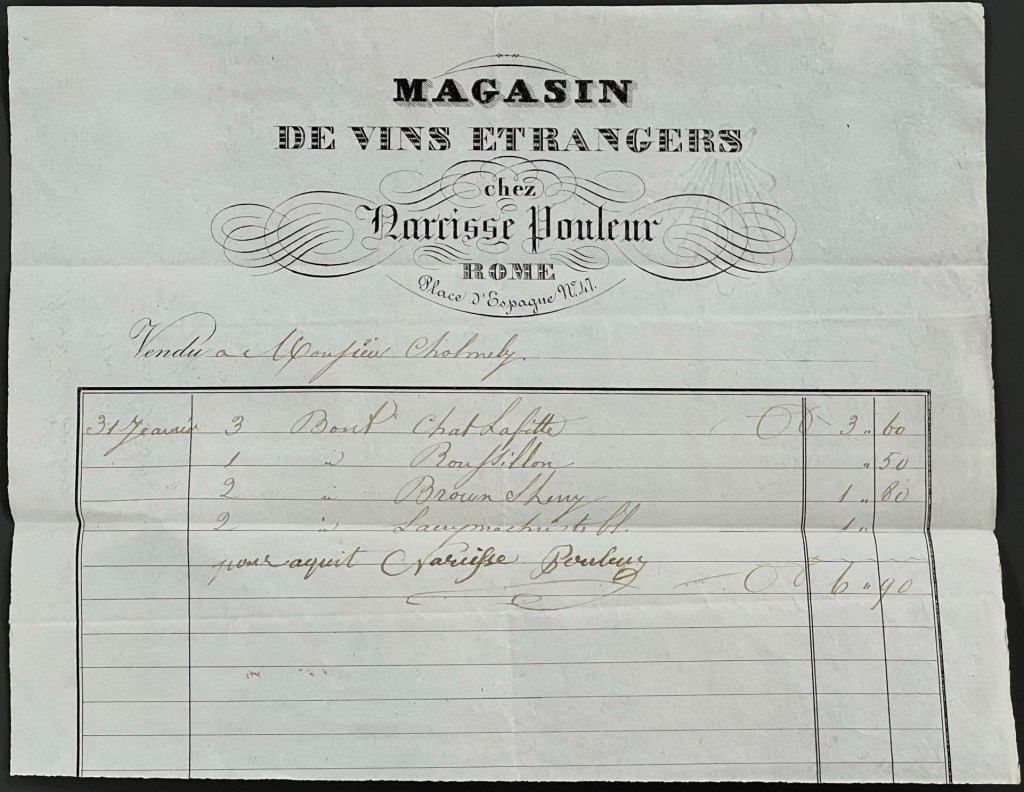 MAGASIN
DE VINS ETRANGERS
chez
Narcisse Pouleur
ROME
Place d'Espagne N.º 41.
Vendu a Monsieur Cholmely.
31 Jeanvie 3 Bout Chat Lafitte 3 " 60
1 " Roussillon " 50
2 " Brown Sherry 1 " 80
2 " bl. 1 "
pour aquit Narcisse Pouleur
6 " 90